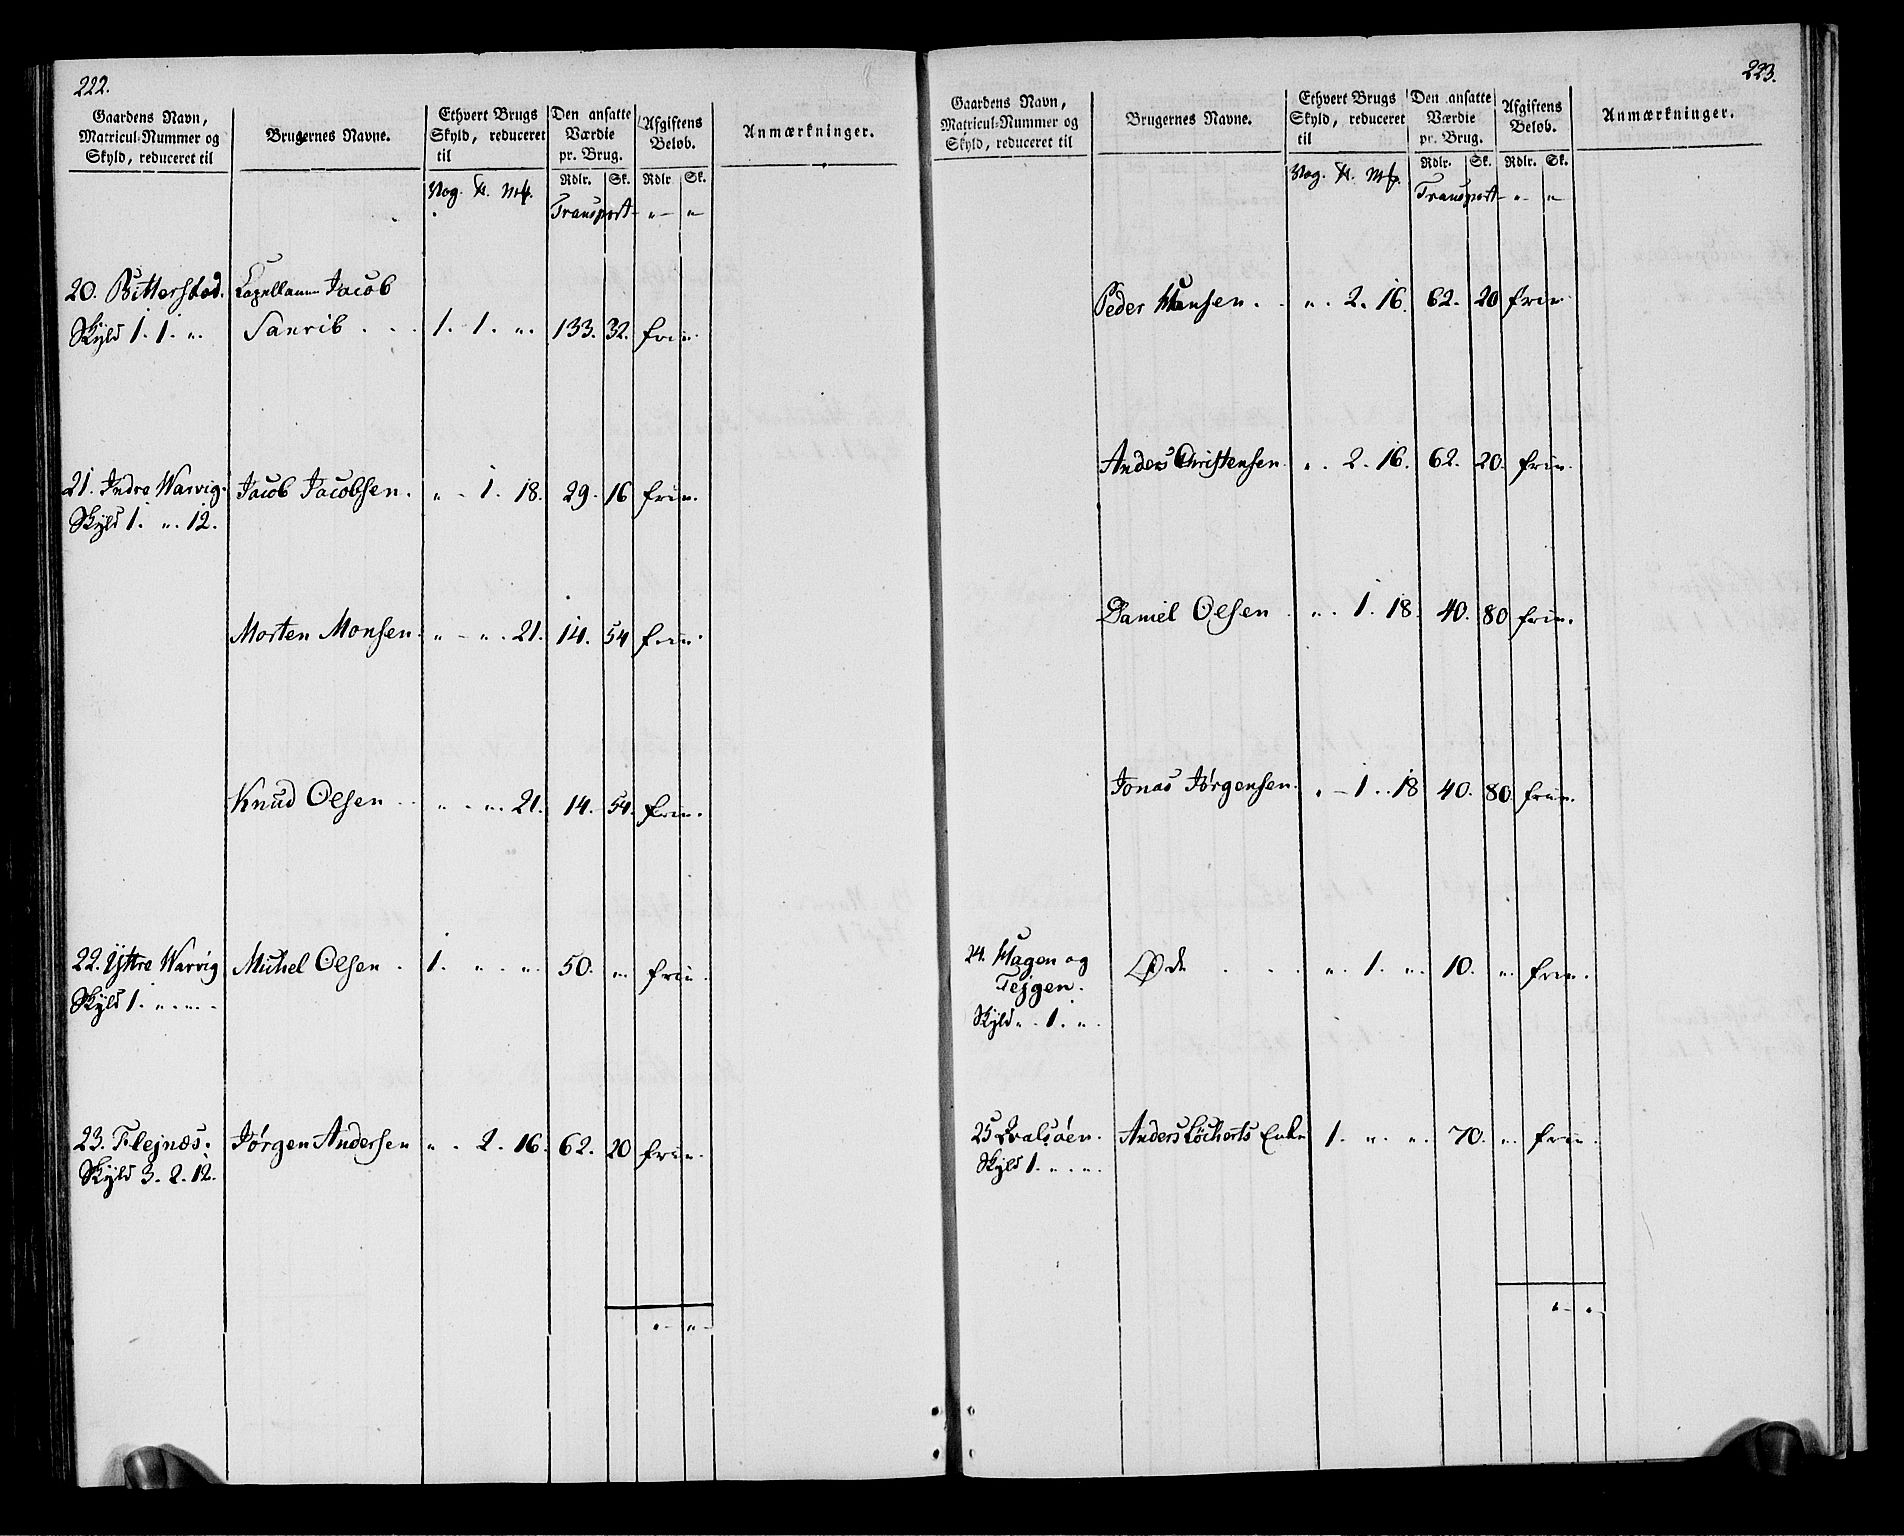 222.
Gaardens Navn, Matricul-Nummer og Skyld, reduceret til
Brugernes Navne.
Ethvert Brugs Skyld, reduceret til
Den ansatte Værdie pr. Brug.
Afgiftens Beløb.
Anmærkninger.
Rdlr. Sk. Rdlr. Sk.
Vog. Transport - " - "
20. Bitterstad. Capellann Jacob
Skyld 1. 1. ". Sanrib . . . 1. 1. ". 133. 32. frie.
21. Indre Warvig. Jacob Jacobsen. " - 1. 18. 29. 16 frie.
Skyld 1. ". 12.
Morten Monsen. " - ". 21. 14. 54 frie.
Knud Olsen . . " . ". 21. 14. 54. frie.
22. Yttre Warvig Michel Olsen . 1. ". ". 50. ". frie.
Skyld 1. " . " . -
23. Flejnæs: Jørgen Andersen " . 2. 16. 62. 20 frie.
Skyld 3. 2. 12.
" - " -
223.
Gaardens Navn, Matricul-Nummer og Skyld, reduceret til
Brugernes Navne.
Ethvert Brugs Skyld, reduceret til
Den ansatte Værdie pr. Brug.
Afgiftens Beløb.
Anmærkninger.
Rdlr. Sk. Rdlr. Sk.
Vog. Transport - " - "
Peder Hansen . . " . 2. 16. 62. 20 frie.
Anders Christensen. " . 2. 16. 62. 20. frie.
Daniel Olsen . " . 1. 18. 40. 80 frie.
Jonas Jørgensen. " - 1. . 18 40. 80. frie.
24. Hagen og Øde . . . ". 1. ". 10. ". frie.
Tejgen.
Skyld " . 1. ".
25 Hvalsøen. Anders Löcherts Enke 1. ". ". 70. ". frie.
Skyld 1. " . ".
" - " -